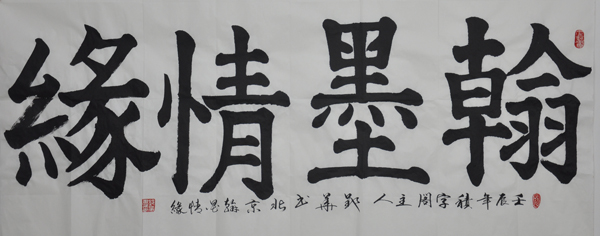 翰墨情緣
壬辰年積字閣主人 華书北京翰墨情緣